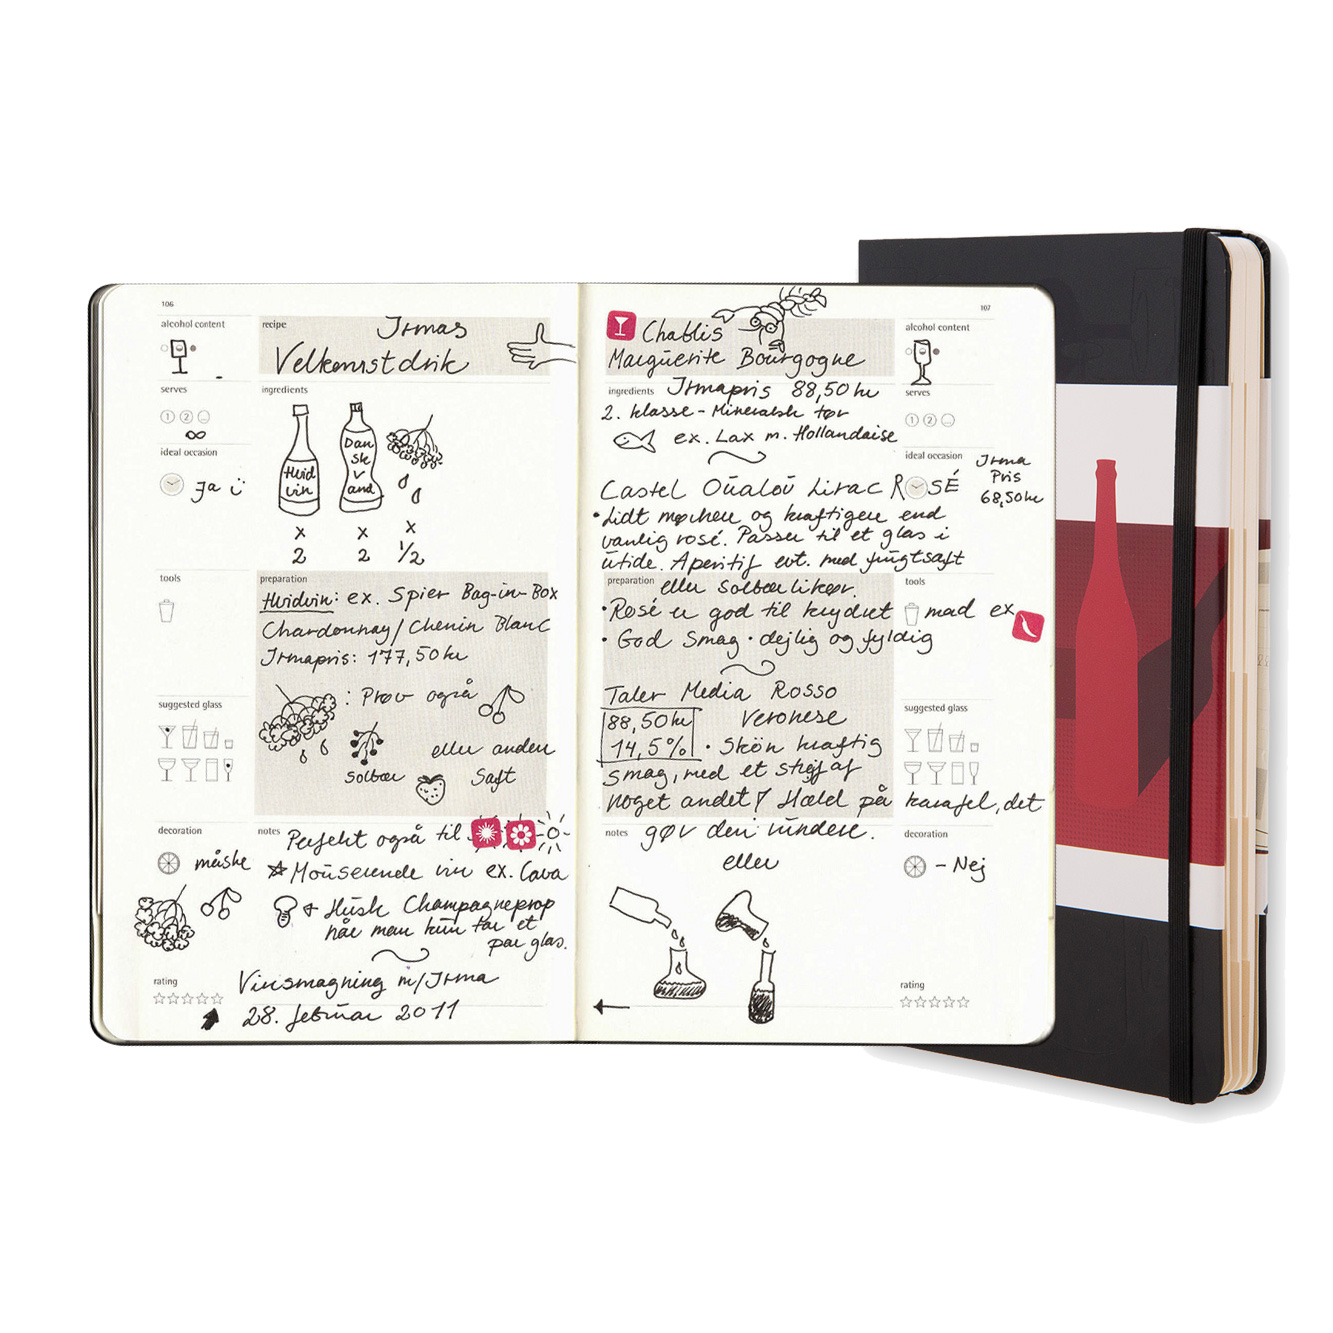 106
alcohol content
recipe
Irmas
Velkomstdrik
serves
1 2 ...
∞
ingredients
Hvid
vin
Dan
sk
vand
x
2
x
2
x
1/2
ideal occasion
Ja
tools
preparation
Hvidvin: ex. Spier Bag-in-Box
Chardonnay/Chenin Blanc
Irmapris: 177,50 kr
: Prøv også
solbær
eller anden
Saft
suggested glass
decoration
måske
notes
Perfekt også til
Mousserende vin ex. Cava
+ Husk Champagneprop
når man kun tar et
par glas.
rating
Vinsmagning m/Irma
28. februar 2011
107
Chablis
Marguerite Bourgogne
alcohol content
ingredients
Irmapris 88,50 kr
2. klasse - Mineralsk tør
ex. Lax m. Hollandaise
serves
1 2 ...
ideal occasion
Irma
Pris
68,50 kr
Castel Oualou Lirac ROSÉ
• Lidt mørkere og kraftigere end
vanlig rosé. Passer til et glas i
utide. Aperitif evt. med frugtsaft
preparation
eller solbærlikør.
• Rosé er god til krydret mad ex
• God smag • dejlig og fyldig
tools
Taler Media Rosso
88,50 kr
Veronese
14,5%
• Skøn kraftig
smag, med et strejf af
noget andet! Hæld på karafel, det
gør den rundere.
eller
suggested glass
notes
decoration
- Nej
rating